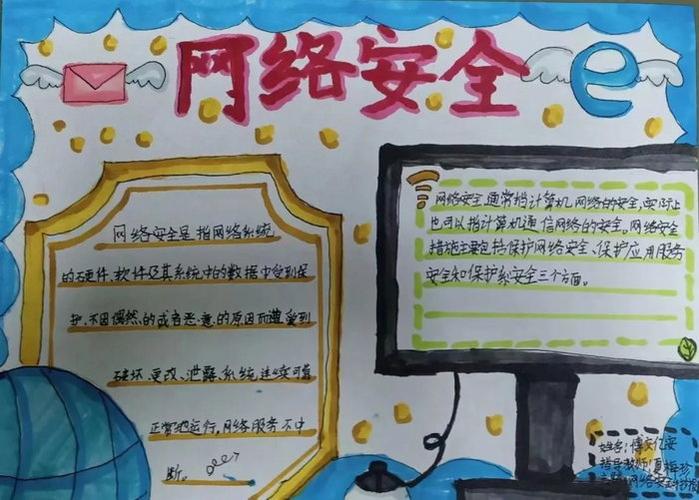 网络安全
网络安全是指网络系统
的硬件、软件及其系统中的数据中受到保
护、不因偶然的或者恶意的原因而遭受到
破坏、更改、泄露、系统连续可靠
正常地运行，网络服务不中
断。
网络安全通常指计算机网络的安全，实际上
也可以指计算机通信网络的安全。网络安全
措施主要包括保护网络安全、保护应用服务
安全和保护系统安全三个方面。
姓名：傅文亿安
指导教师：夏梅珍
主题：网络安全